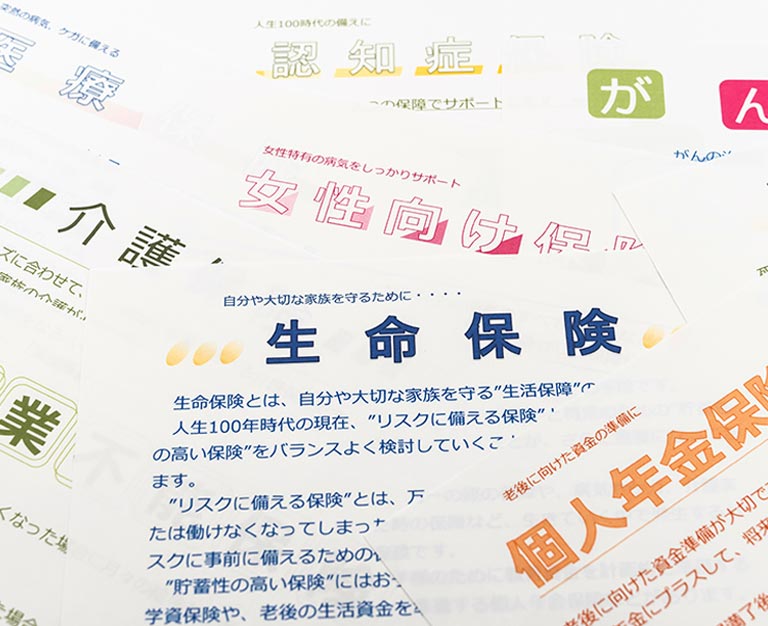 突然の病気、ケガに備える
医療
人生100時代の備えに
認知症保険
の保障でサポート
がん
がんの
女性特有の病気をしっかりサポート
女性向け保険
介護
ズに合わせて、
家族の介護が
業
くなった場
自分や大切な家族を守るために・・・・
生命保険
生命保険とは、自分や大切な家族を守る"生活保障"の
人生100年時代の現在、"リスクに備える保険"
の高い保険"をバランスよく検討していくこ
ます。
"リスクに備える保険"とは、万
たは働けなくなってしまった
スクに事前に備えるための
"貯蓄性の高い保険"にはお
学資保険や、老後の生活資金を
老後に向けた資金の準備に
個人年金保険
老後に向けた資金準備が大切で
年金にプラスして、将来
満了後